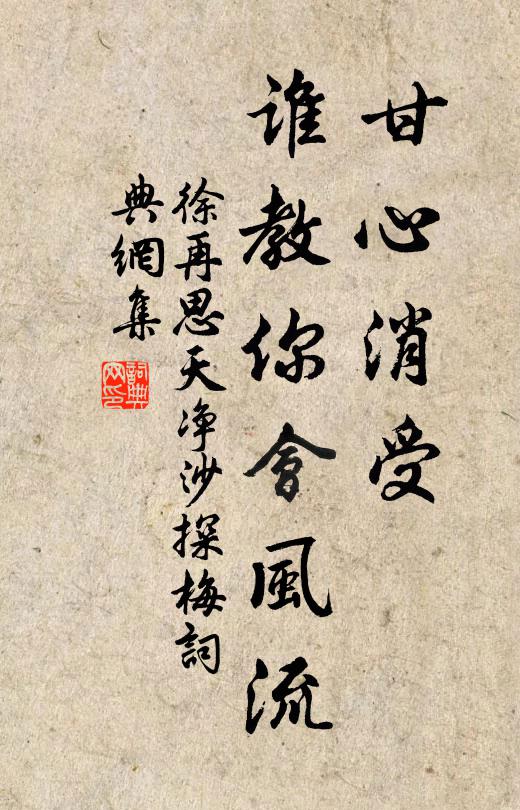 甘心消受
誰教你會風流
徐再思天净沙探梅詞
典網集
詞典
网印